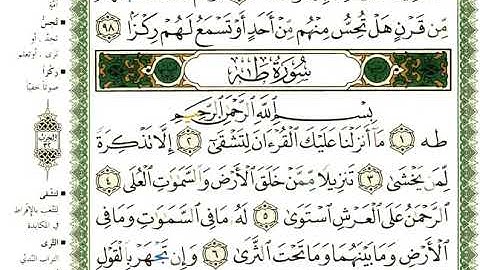 مِّن قَرْنٍ هَلْ تُحِسُّ مِنْهُم مِّنْ أَحَدٍ أَوْ تَسْمَعُ لَهُمْ رِكْزًا ٩٨
سُورَةُ طٰهٰ
بِسْمِ اللَّهِ الرَّحْمَٰنِ الرَّحِيمِ
طه ١ مَا أَنزَلْنَا عَلَيْكَ الْقُرْءَانَ لِتَشْقَىٰ ٢ إِلَّا تَذْكِرَةً
لِّمَن يَخْشَىٰ ٣ تَنزِيلًا مِّمَّنْ خَلَقَ الْأَرْضَ وَالسَّمَٰوَٰتِ الْعُلَى ٤
الرَّحْمَٰنُ عَلَى الْعَرْشِ اسْتَوَىٰ ٥ لَهُ مَا فِي السَّمَٰوَٰتِ وَمَا فِي
الْأَرْضِ وَمَا بَيْنَهُمَا وَمَا تَحْتَ الثَّرَىٰ ٦ وَإِن تَجْهَرْ بِالْقَوْلِ
تُحِسُّ
تجد، أو
ترى، أو تعلم
رِكْزًا
صوتًا خفيًا
لِتَشْقَى
لتتعب بالإفراط
في المكابدة
الثَّرَى
التراب النَّدِيّ